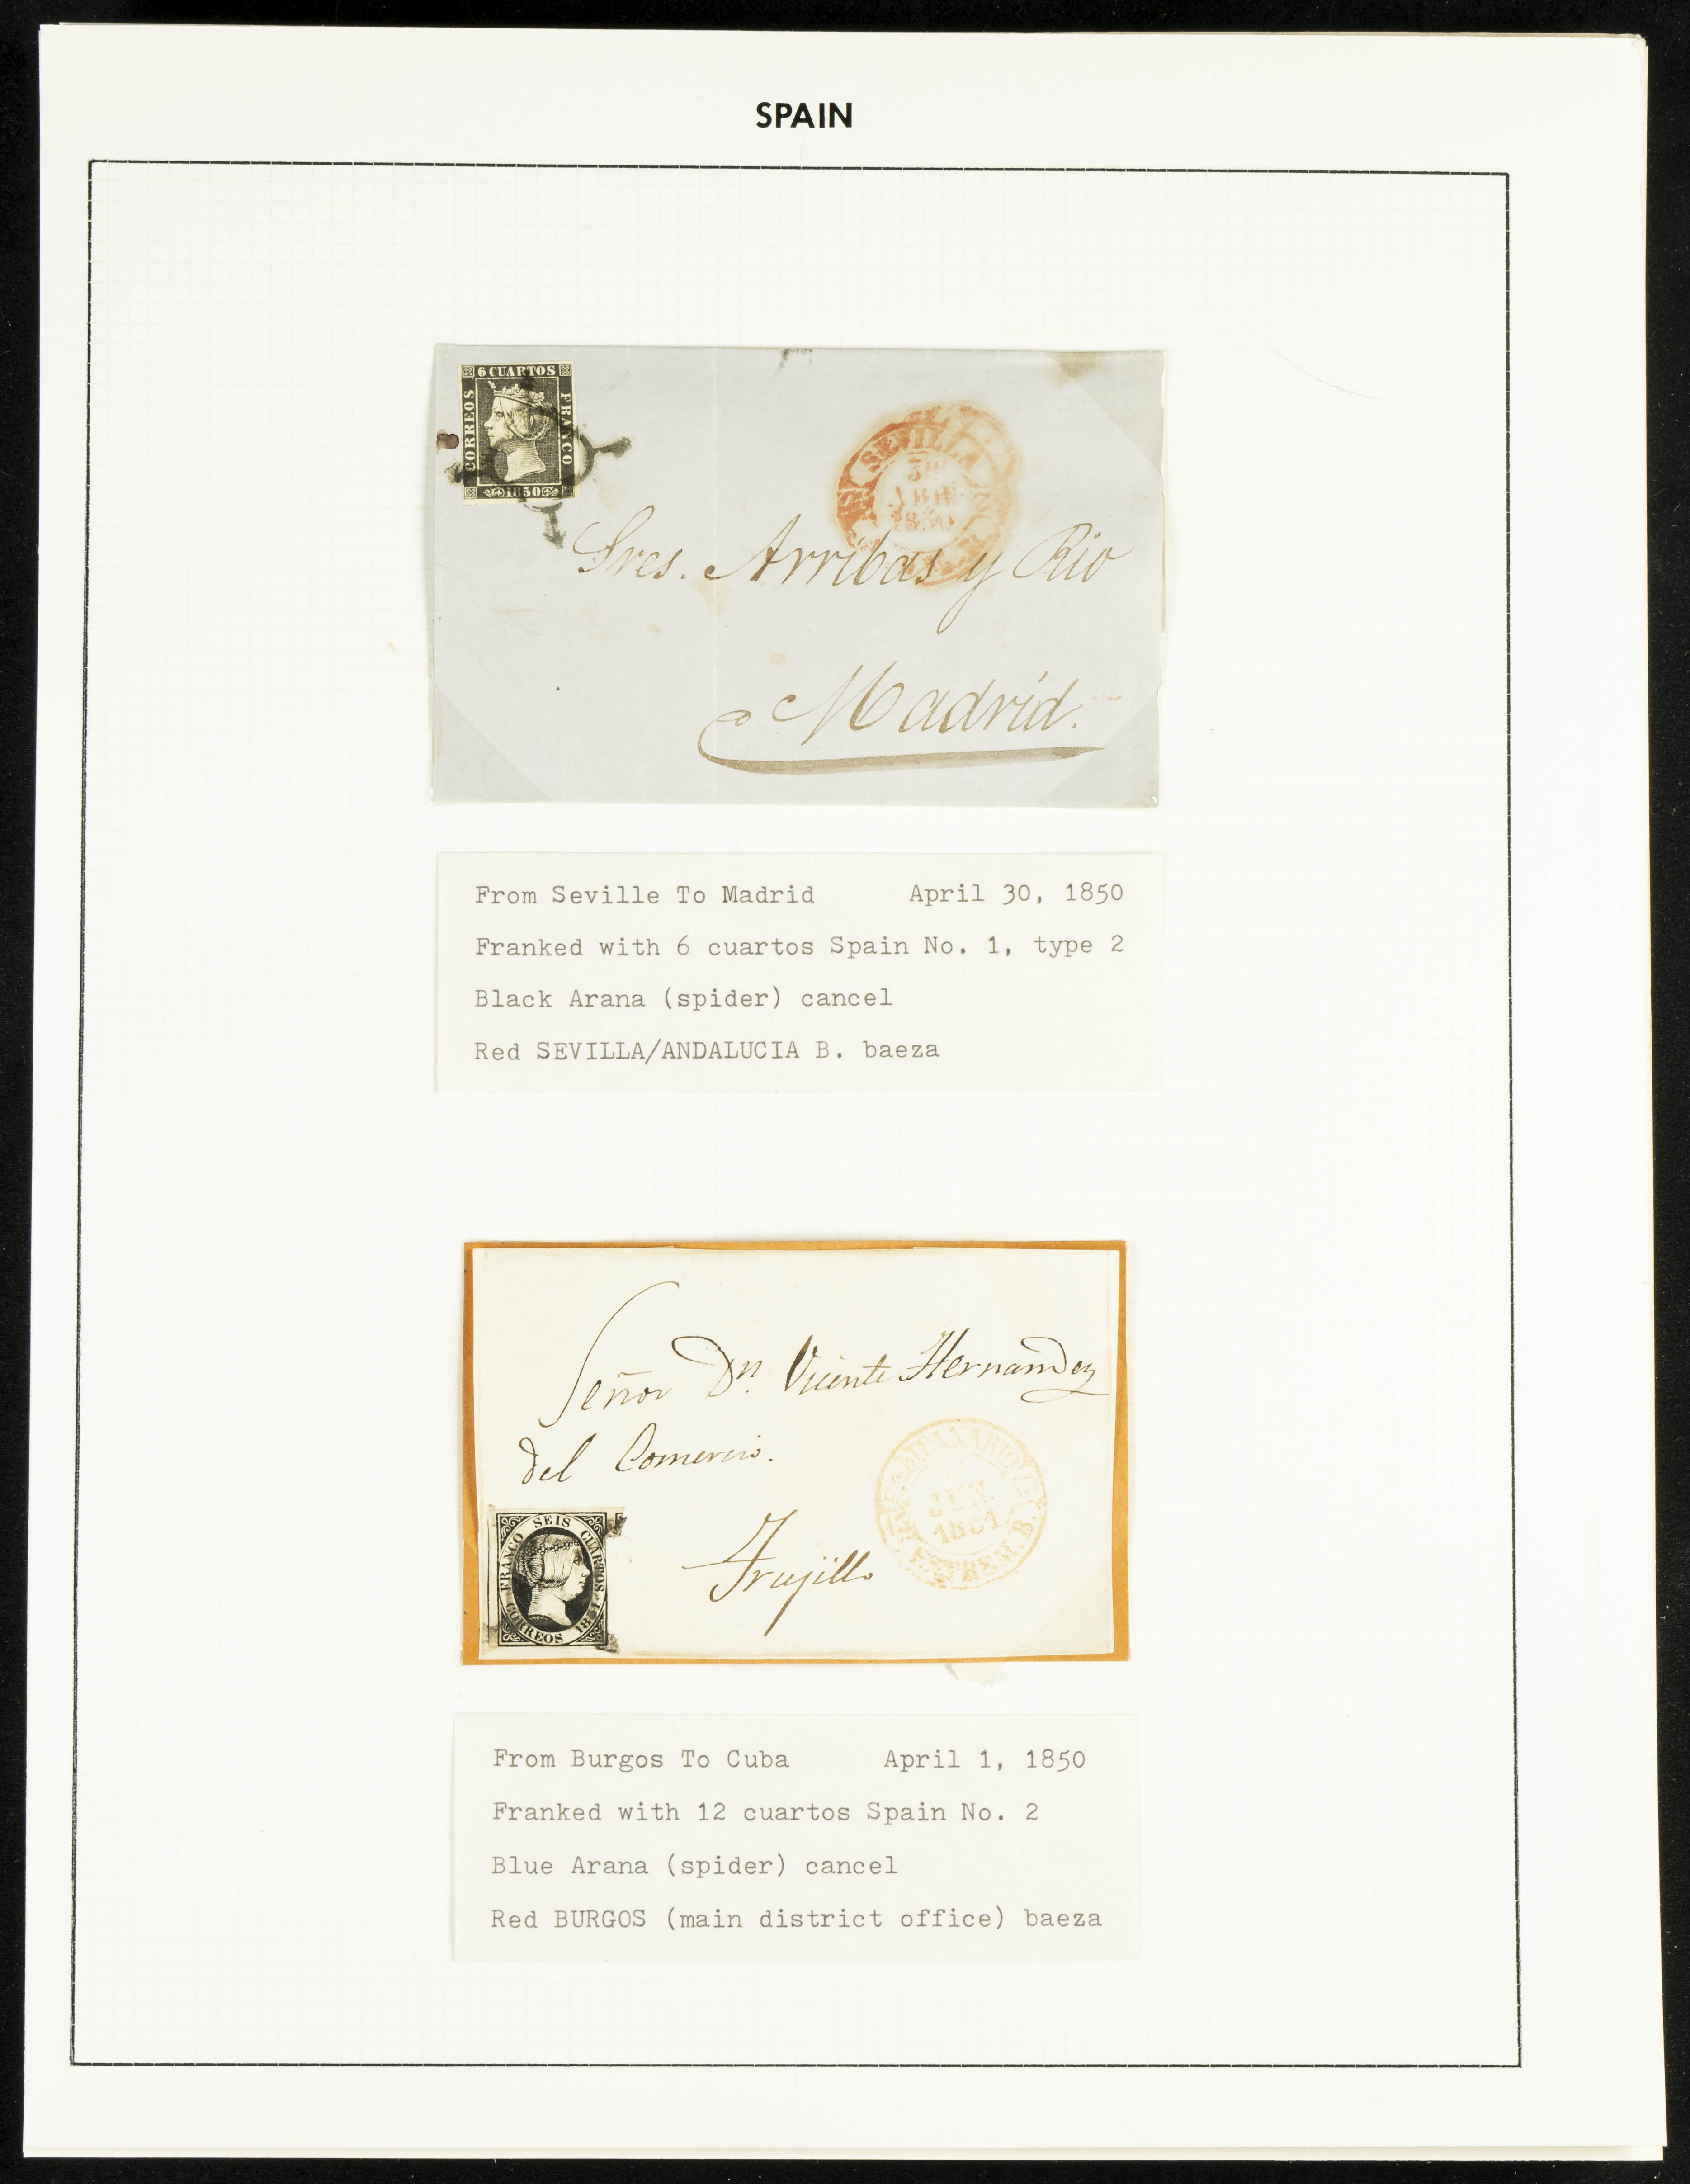 SPAIN
6 CUARTOS
CORREOS
FRANCO
1850
SEVILLA
30
1850
Sres. Arribas y Rio
Madrid.
From Seville To Madrid April 30, 1850
Franked with 6 cuartos Spain No. 1, type 2
Black Arana (spider) cancel
Red SEVILLA/ANDALUCIA B. baeza
Señor Dn. Vicente Hernandez
del Comercio.
Trujillo
JUN.
1851
ESTREM. B.
FRANCO SEIS CUARTOS
CORREOS 1851
From Burgos To Cuba April 1, 1850
Franked with 12 cuartos Spain No. 2
Blue Arana (spider) cancel
Red BURGOS (main district office) baeza